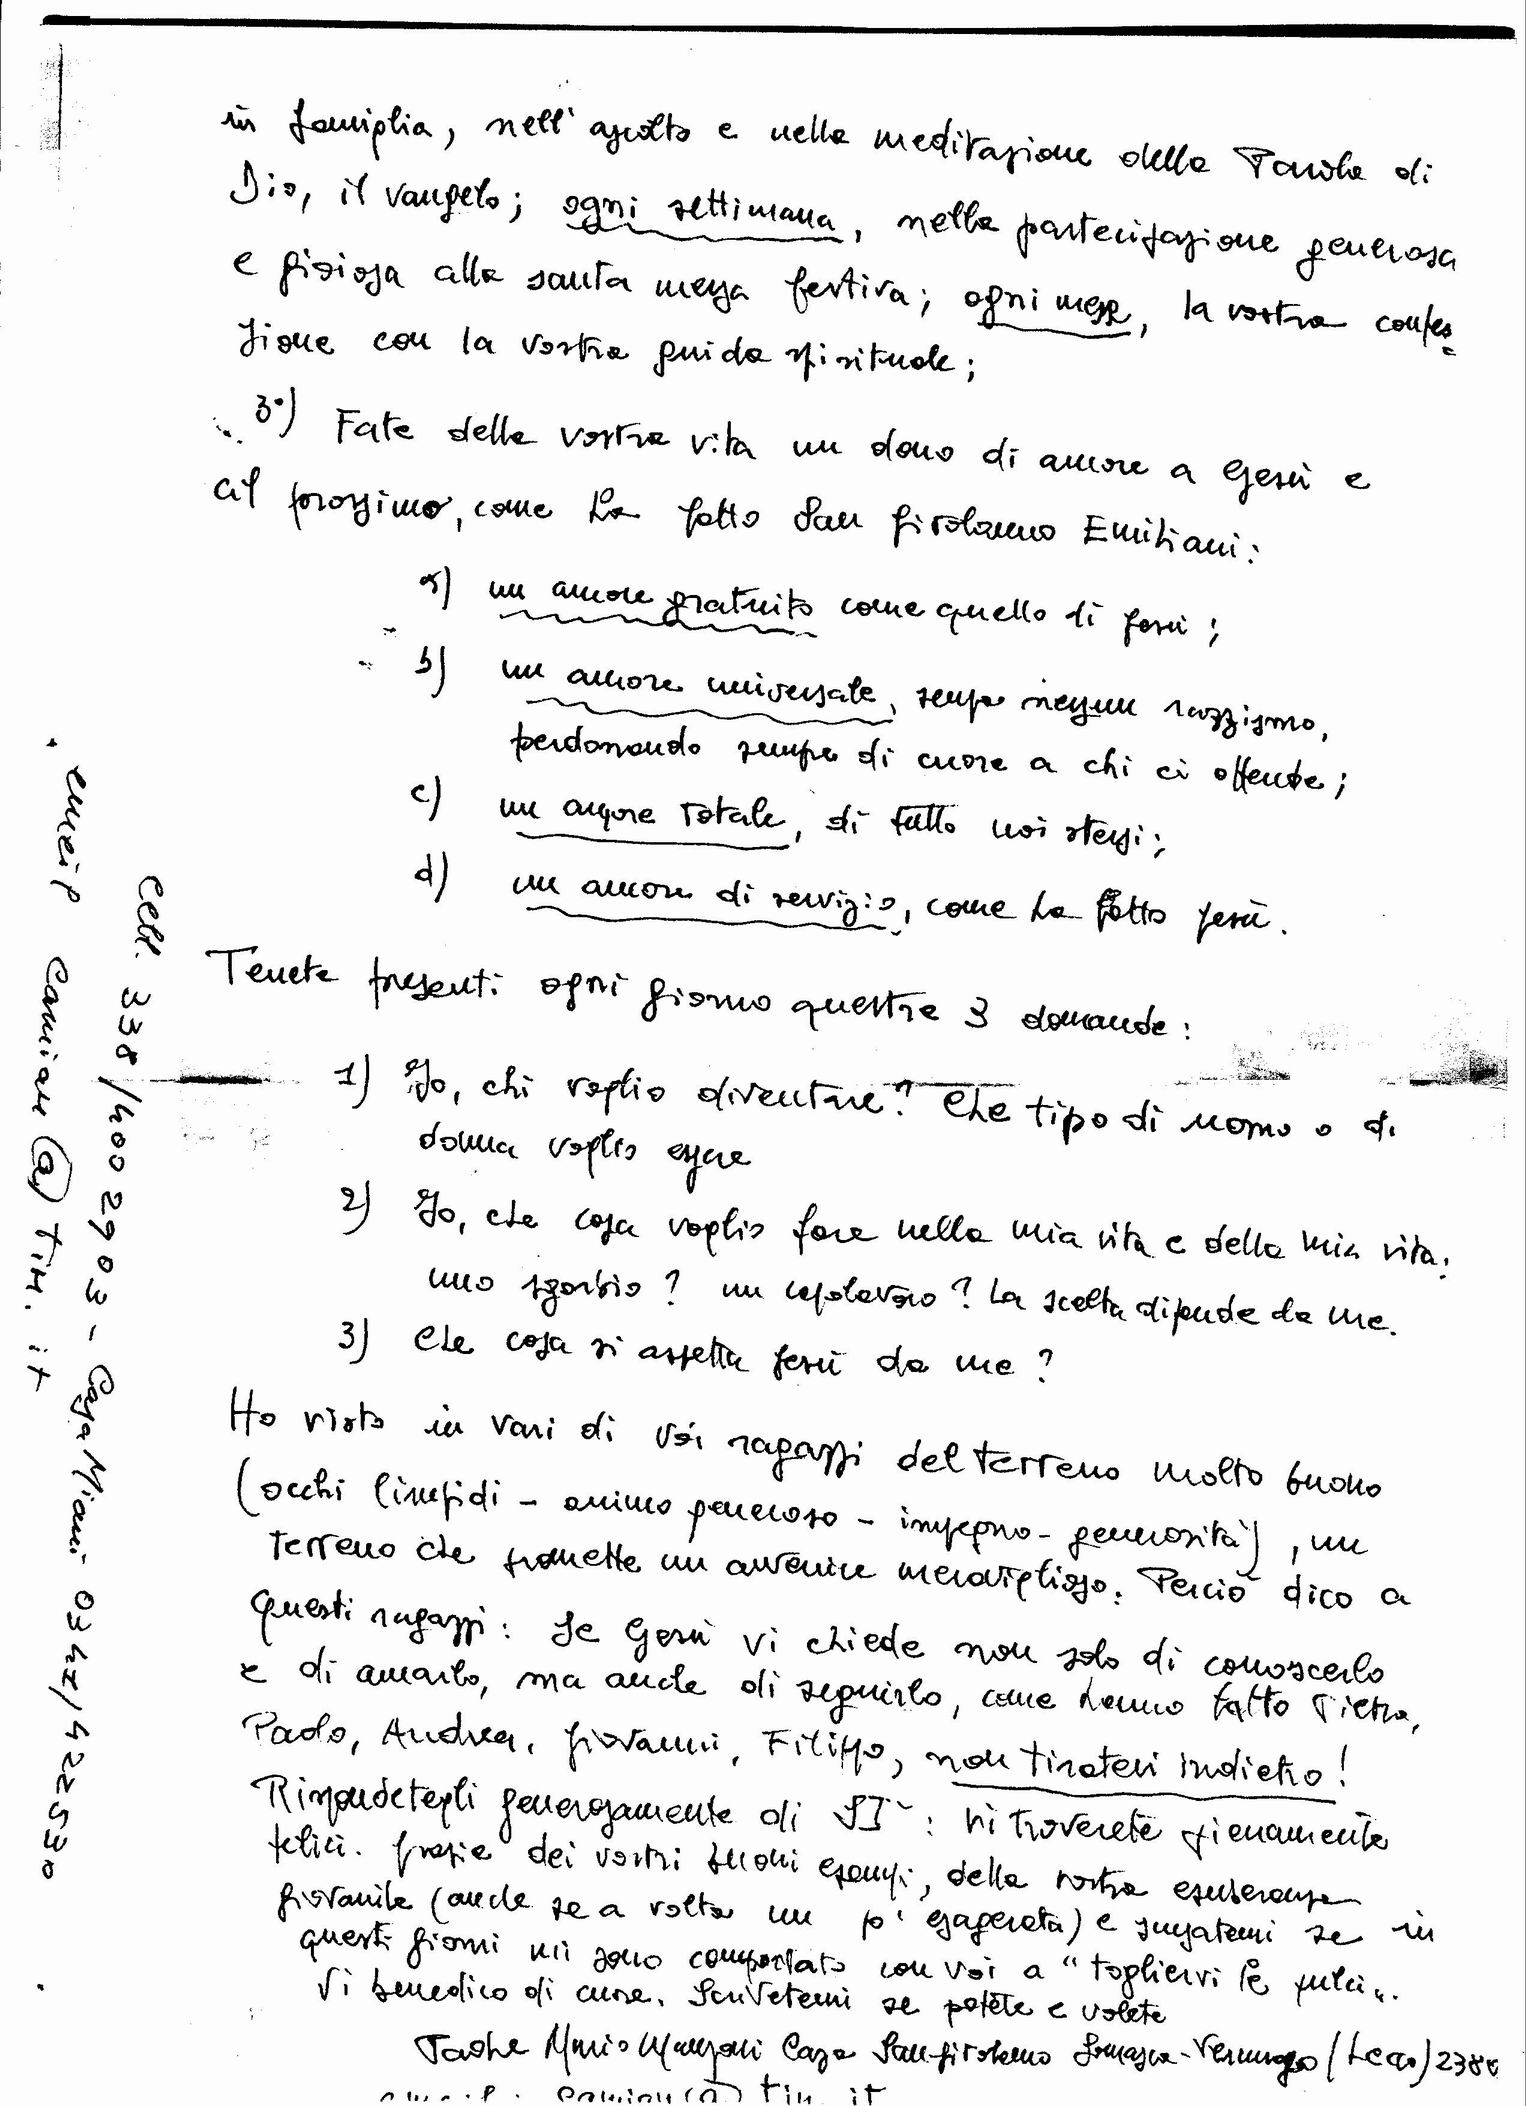 in famiglia, nell'ascolto e nella meditazione della Parola di
Dio, il vangelo; ogni settimana, nella partecipazione generosa
e gioiosa alla santa messa festiva; ogni mese, la vostra confes=
sione con la vostra guida spirituale;
3°) Fate della vostra vita un dono di amore a Gesù e
al prossimo, come ha fatto San Girolamo Emiliani:
a) un amore gratuito come quello di Gesù;
b) un amore universale, senza nessun razzismo,
perdonando sempre di cuore a chi ci offende;
c) un amore totale, di tutto noi stessi;
d) un amore di servizio, come ha fatto Gesù.
Tenete presenti ogni giorno queste 3 domande:
1) Io, chi voglio diventare? Che tipo di uomo o di
donna voglio essere
2) Io, che cosa voglio fare nella mia vita e della mia vita:
uno sgorbio? un capolavoro? La scelta dipende da me.
3) Che cosa si aspetta Gesù da me?
Ho visto in vari di voi ragazzi del terreno molto buono
(occhi limpidi - animo generoso - impegno - generosità), un
terreno che promette un avvenire meraviglioso. Perciò dico a
questi ragazzi: se Gesù vi chiede non solo di conoscerlo
e di amarlo, ma anche di seguirlo, come hanno fatto Pietro,
Paolo, Andrea, Giovanni, Filippo, non tiratevi indietro!
Rispondetegli generosamente di SI: vi troverete pienamente
felici. Grazie dei vostri buoni esempi, della vostra esuberanza
giovanile (anche se a volte un po' esagerata) e scusatemi se in
questi giorni mi sono comportato con voi a "togliervi le pulci".
Vi benedico di cuore. Scrivetemi se potete e volete
Padre Mario Manzoni Casa San Girolamo Somasca - Vercurago (Lecco) 2380
Cell. 338/4002903 - Casa Miani 0341/422530
email camiani@tim.it